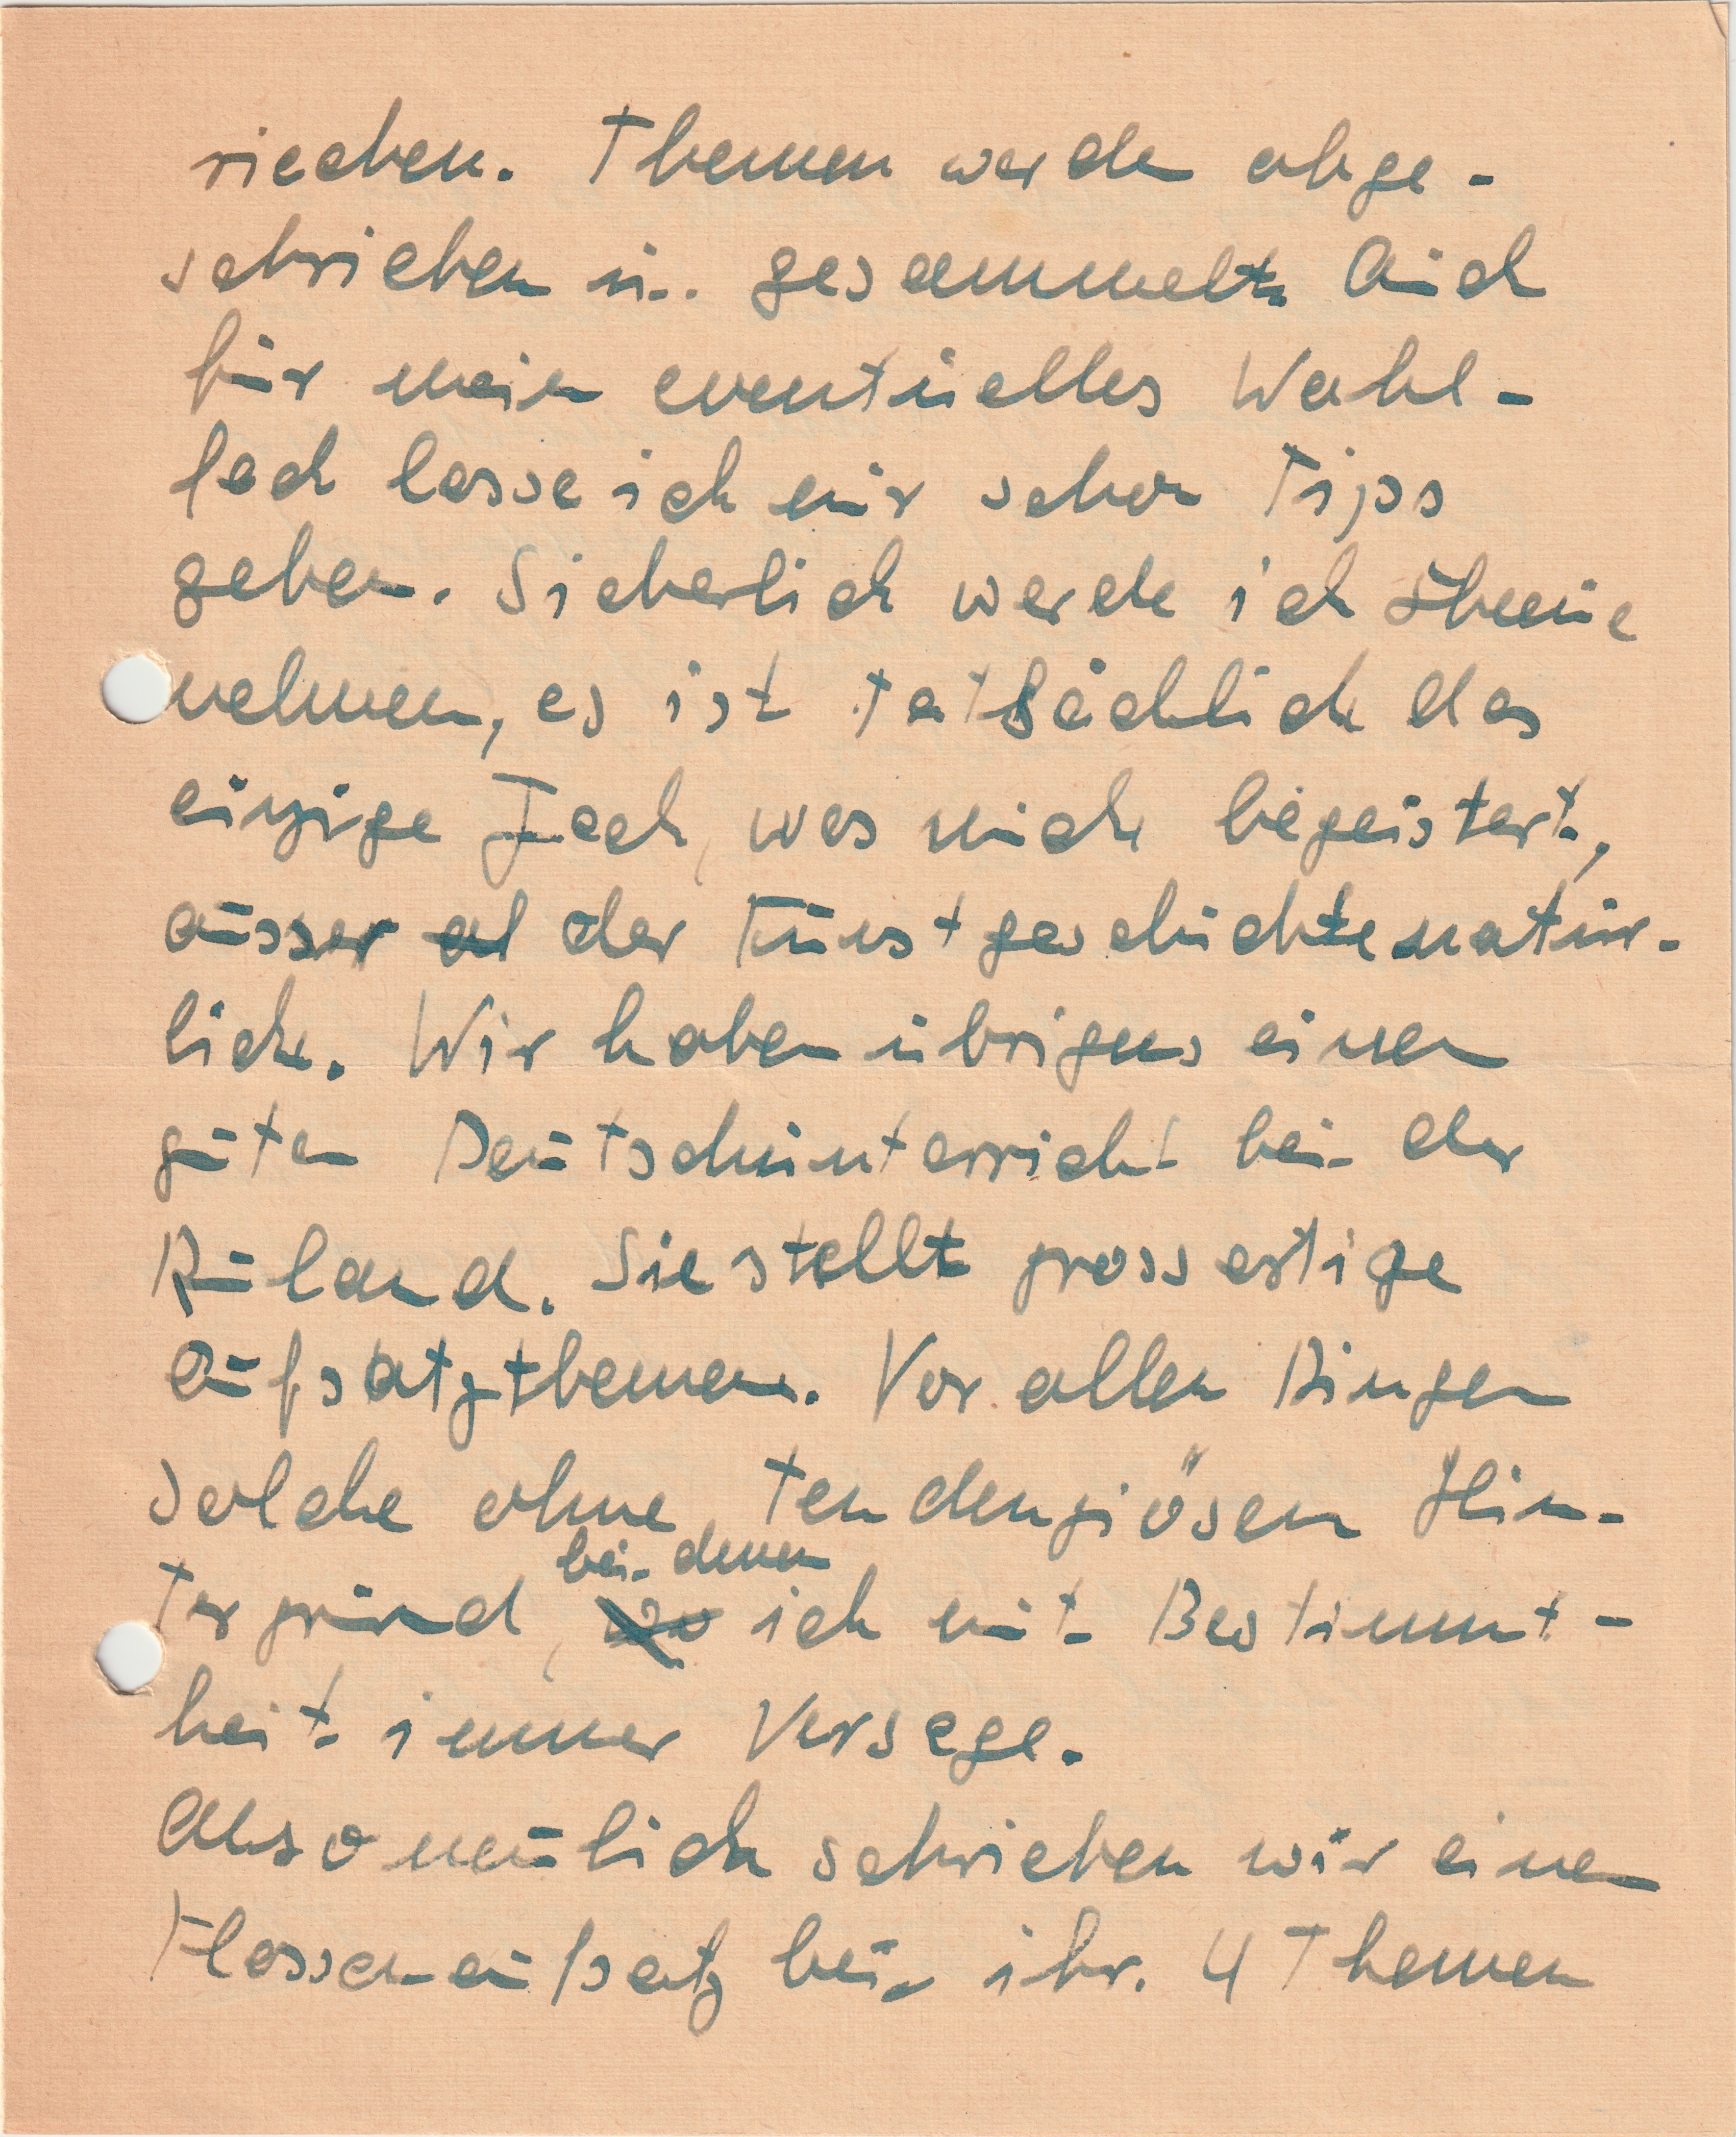 riechen. Themen werden abge-
schrieben u. gesammelt. Auch
für mein eventuelles Wahl-
fach lasse ich mir schon Tips
geben. Sicherlich werde ich Chemie
nehmen, es ist tatsächlich das
einzige Fach, was mich begeistert,
ausser der Kunstgeschichte natür-
lich. Wir haben übrigens einen
guten Deutschunterricht bei der
Ruland. Sie stellt grossartige
Aufsatzthemen. Vor allen Dingen
solche ohne tendenziösen Hin-
tergrund, bei denen ich mit Bestimmt-
heit immer versage.
Also neulich schrieben wir einen
Klassenaufsatz bei ihr. 4 Themen